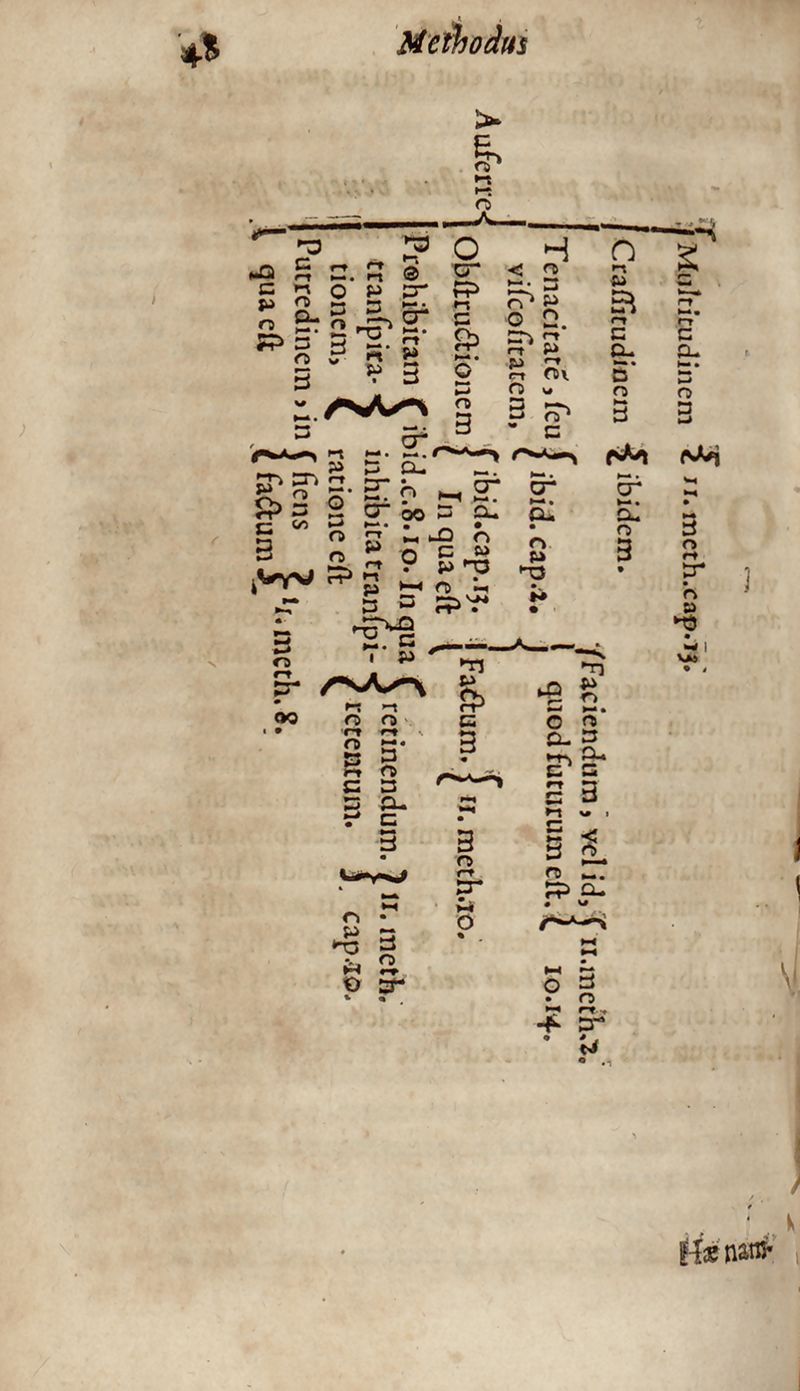 48
Methodus
Auferre
Multitudinem
11. meth. cap. 13.
Crassitudinem
ibidem.
Tenacitatē, seu
viscositatem,
ibid. cap. 2.
Obstructionem
ibid. cap. 13.
In qua est
Faciendum, vel id,
quod futurum est.
11. meth. 2.
10. 14.
Factum.
11. meth. 10.
Prohibitam
transpira-
tionem,
ibid. c. 8. 10. In qua
inhibita transpi-
ratione est
retinendum.
retentum.
11. meth.
cap. 10.
Putredinem, in
qua est
fiens
factum
11. meth. 8.
Hæ nam-